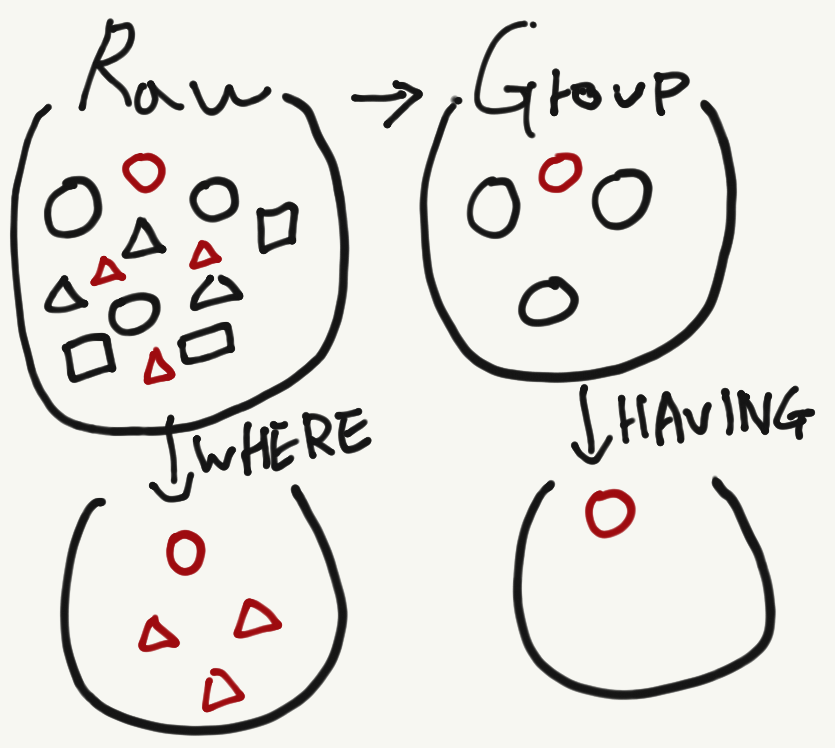 Raw → Group
WHERE
HAVING